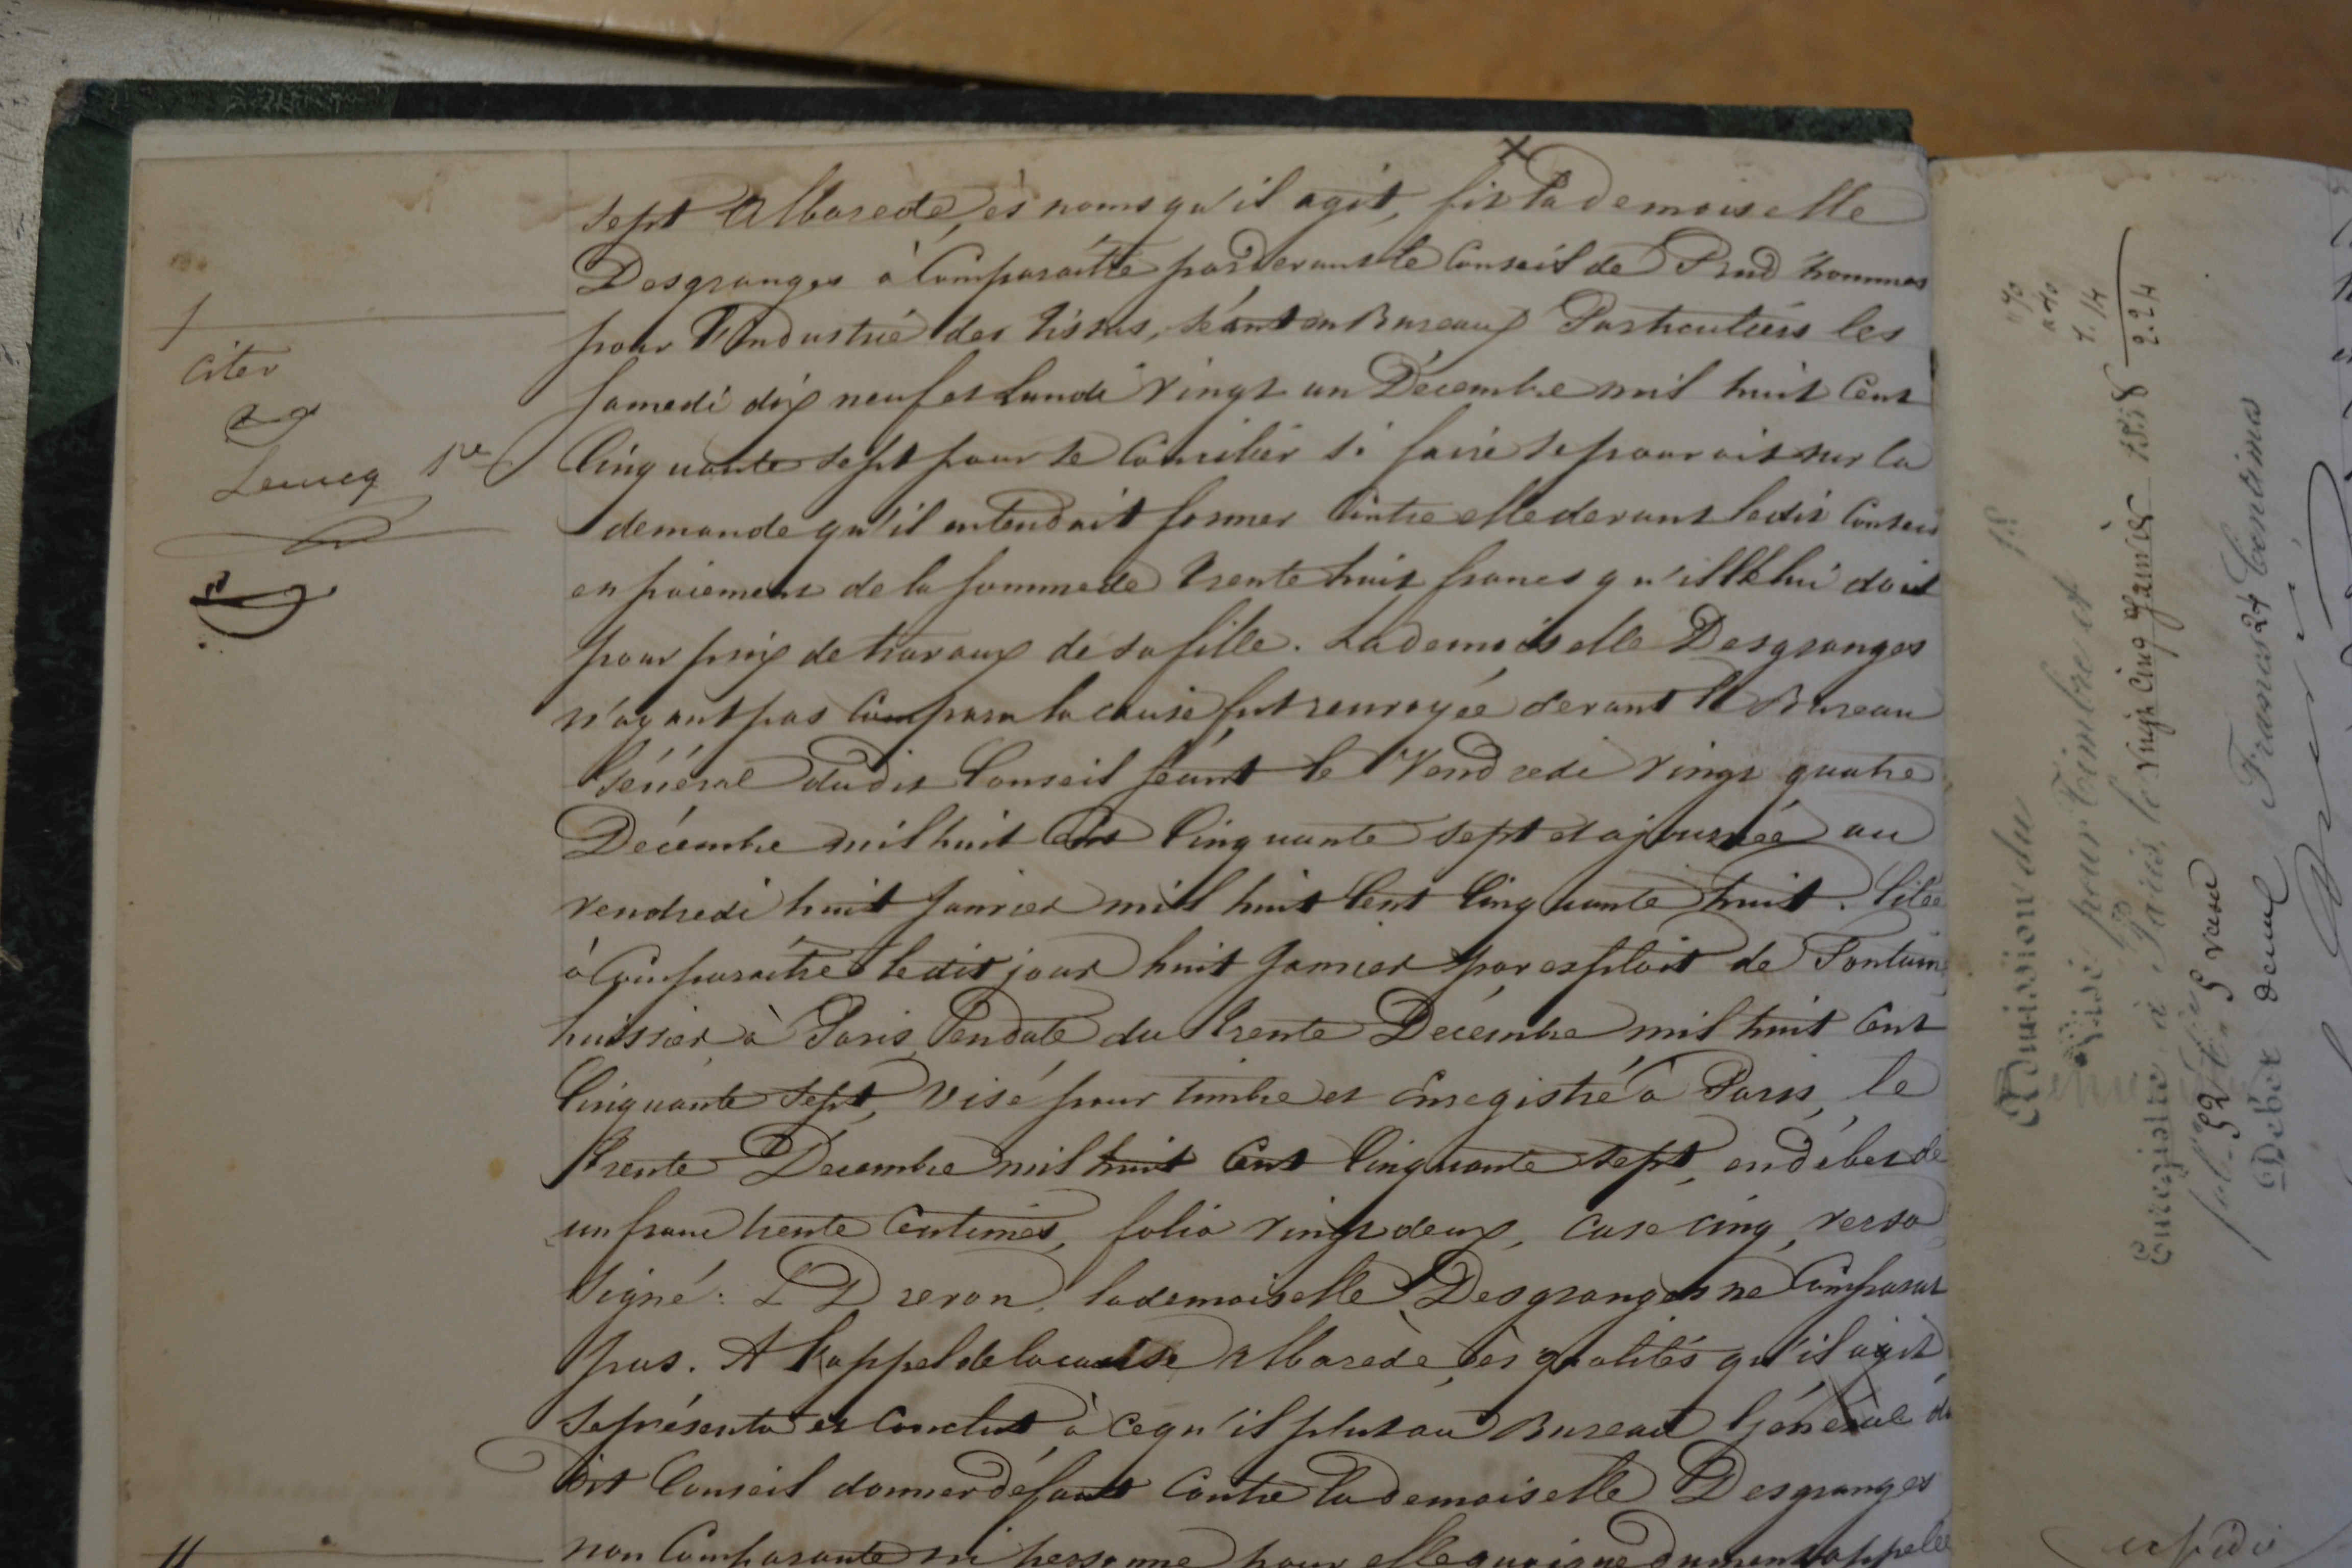 sept Albarède, ès noms qu'il agit, fit la demoiselle
Desgranges à Comparaître pardevant le Conseil de Prud'hommes
pour l'Industrie des tissus, séant en Bureaux Particuliers les
Samedi dix neuf et Lundi vingt un Décembre mil huit Cent
Cinquante sept pour se Concilier si faire se pourrait sur la
demande qu'il entendait former Contre elle devant ledit Conseil
en paiement de la somme de trente huit francs qu'elle lui doit
pour prix de travaux de sa fille. La demoiselle Desgranges
n'ayant pas Comparu la cause fut renvoyée devant le Bureau
Général dudit Conseil séant le Vendredi vingt quatre
Décembre mil huit Cent Cinquante sept et ajournée au
vendredi huit Janvier mil huit Cent Cinquante huit. Citée
à Comparaître ledit jour huit Janvier par exploit de Fontain
huissier à Paris, en date du trente Décembre mil huit Cent
Cinquante sept, Visé pour timbre et Enregistré à Paris, le
trente Décembre mil huit Cent Cinquante sept, en débet de
un franc trente Centimes, folio vingt deux, case cinq, verso
signé: la demoiselle Desgranges ne Comparut
pas. A l'appel de la cause Albarède, ès qualités qu'il agit
se présenta et Conclut à ce qu'il plut au Bureau Général du
dit Conseil donner défaut Contre la demoiselle Desgranges
non Comparante ni personne pour elle quoique dument appelée
Citer
Lecucq 1re
Visé pour Timbre et
Enregistré à Paris, le vingt Cinq Janvier 1858
Débet deux Francs 24 Centimes
1.14
2.24